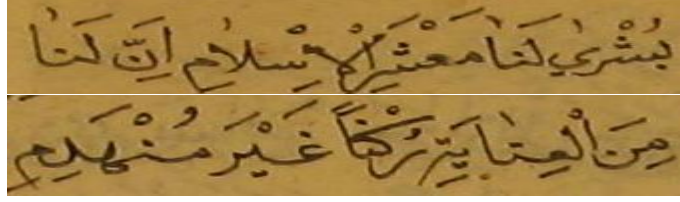 بُشْرىٰ لَنَا مَعْشَرَ الْإِسْلَامِ اِنَّ لَنَا
مِنَ الْعِنَايَةِ رُكْنًا غَيْرَ مُنْهَدِمِ